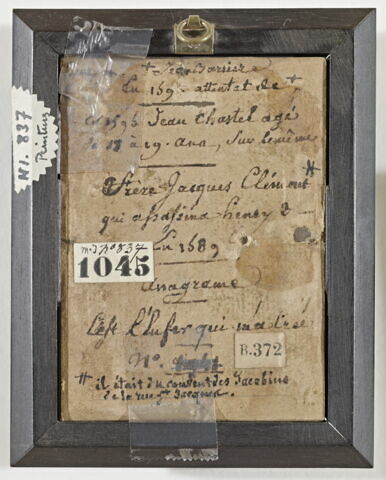 + Jean Barrière
En 159 - attentat de +
1595 Jean Chastel agé
de 18 à 19. ans, Sur le même
*
Frère Jacques Clément
qui assasina henry 3
En 1589
m.I n° 837
1045
Anagrame
C'est l'Enfer qui m'a créé
N°.
B.372
* il était du couvent des Jacobins
de la rue St Jacques.
NI. 837
Peinture